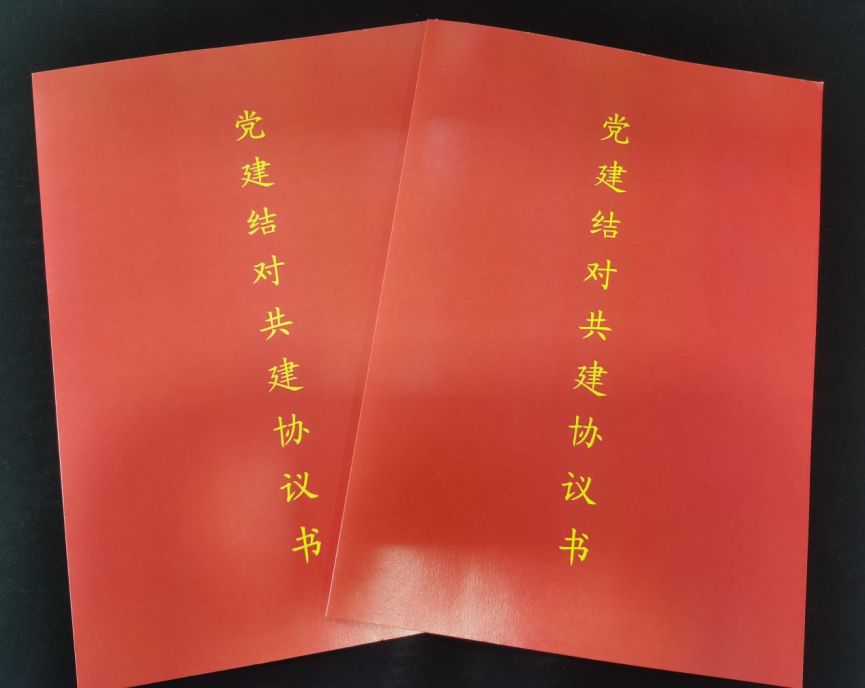 党建结对共建协议书
党建结对共建协议书